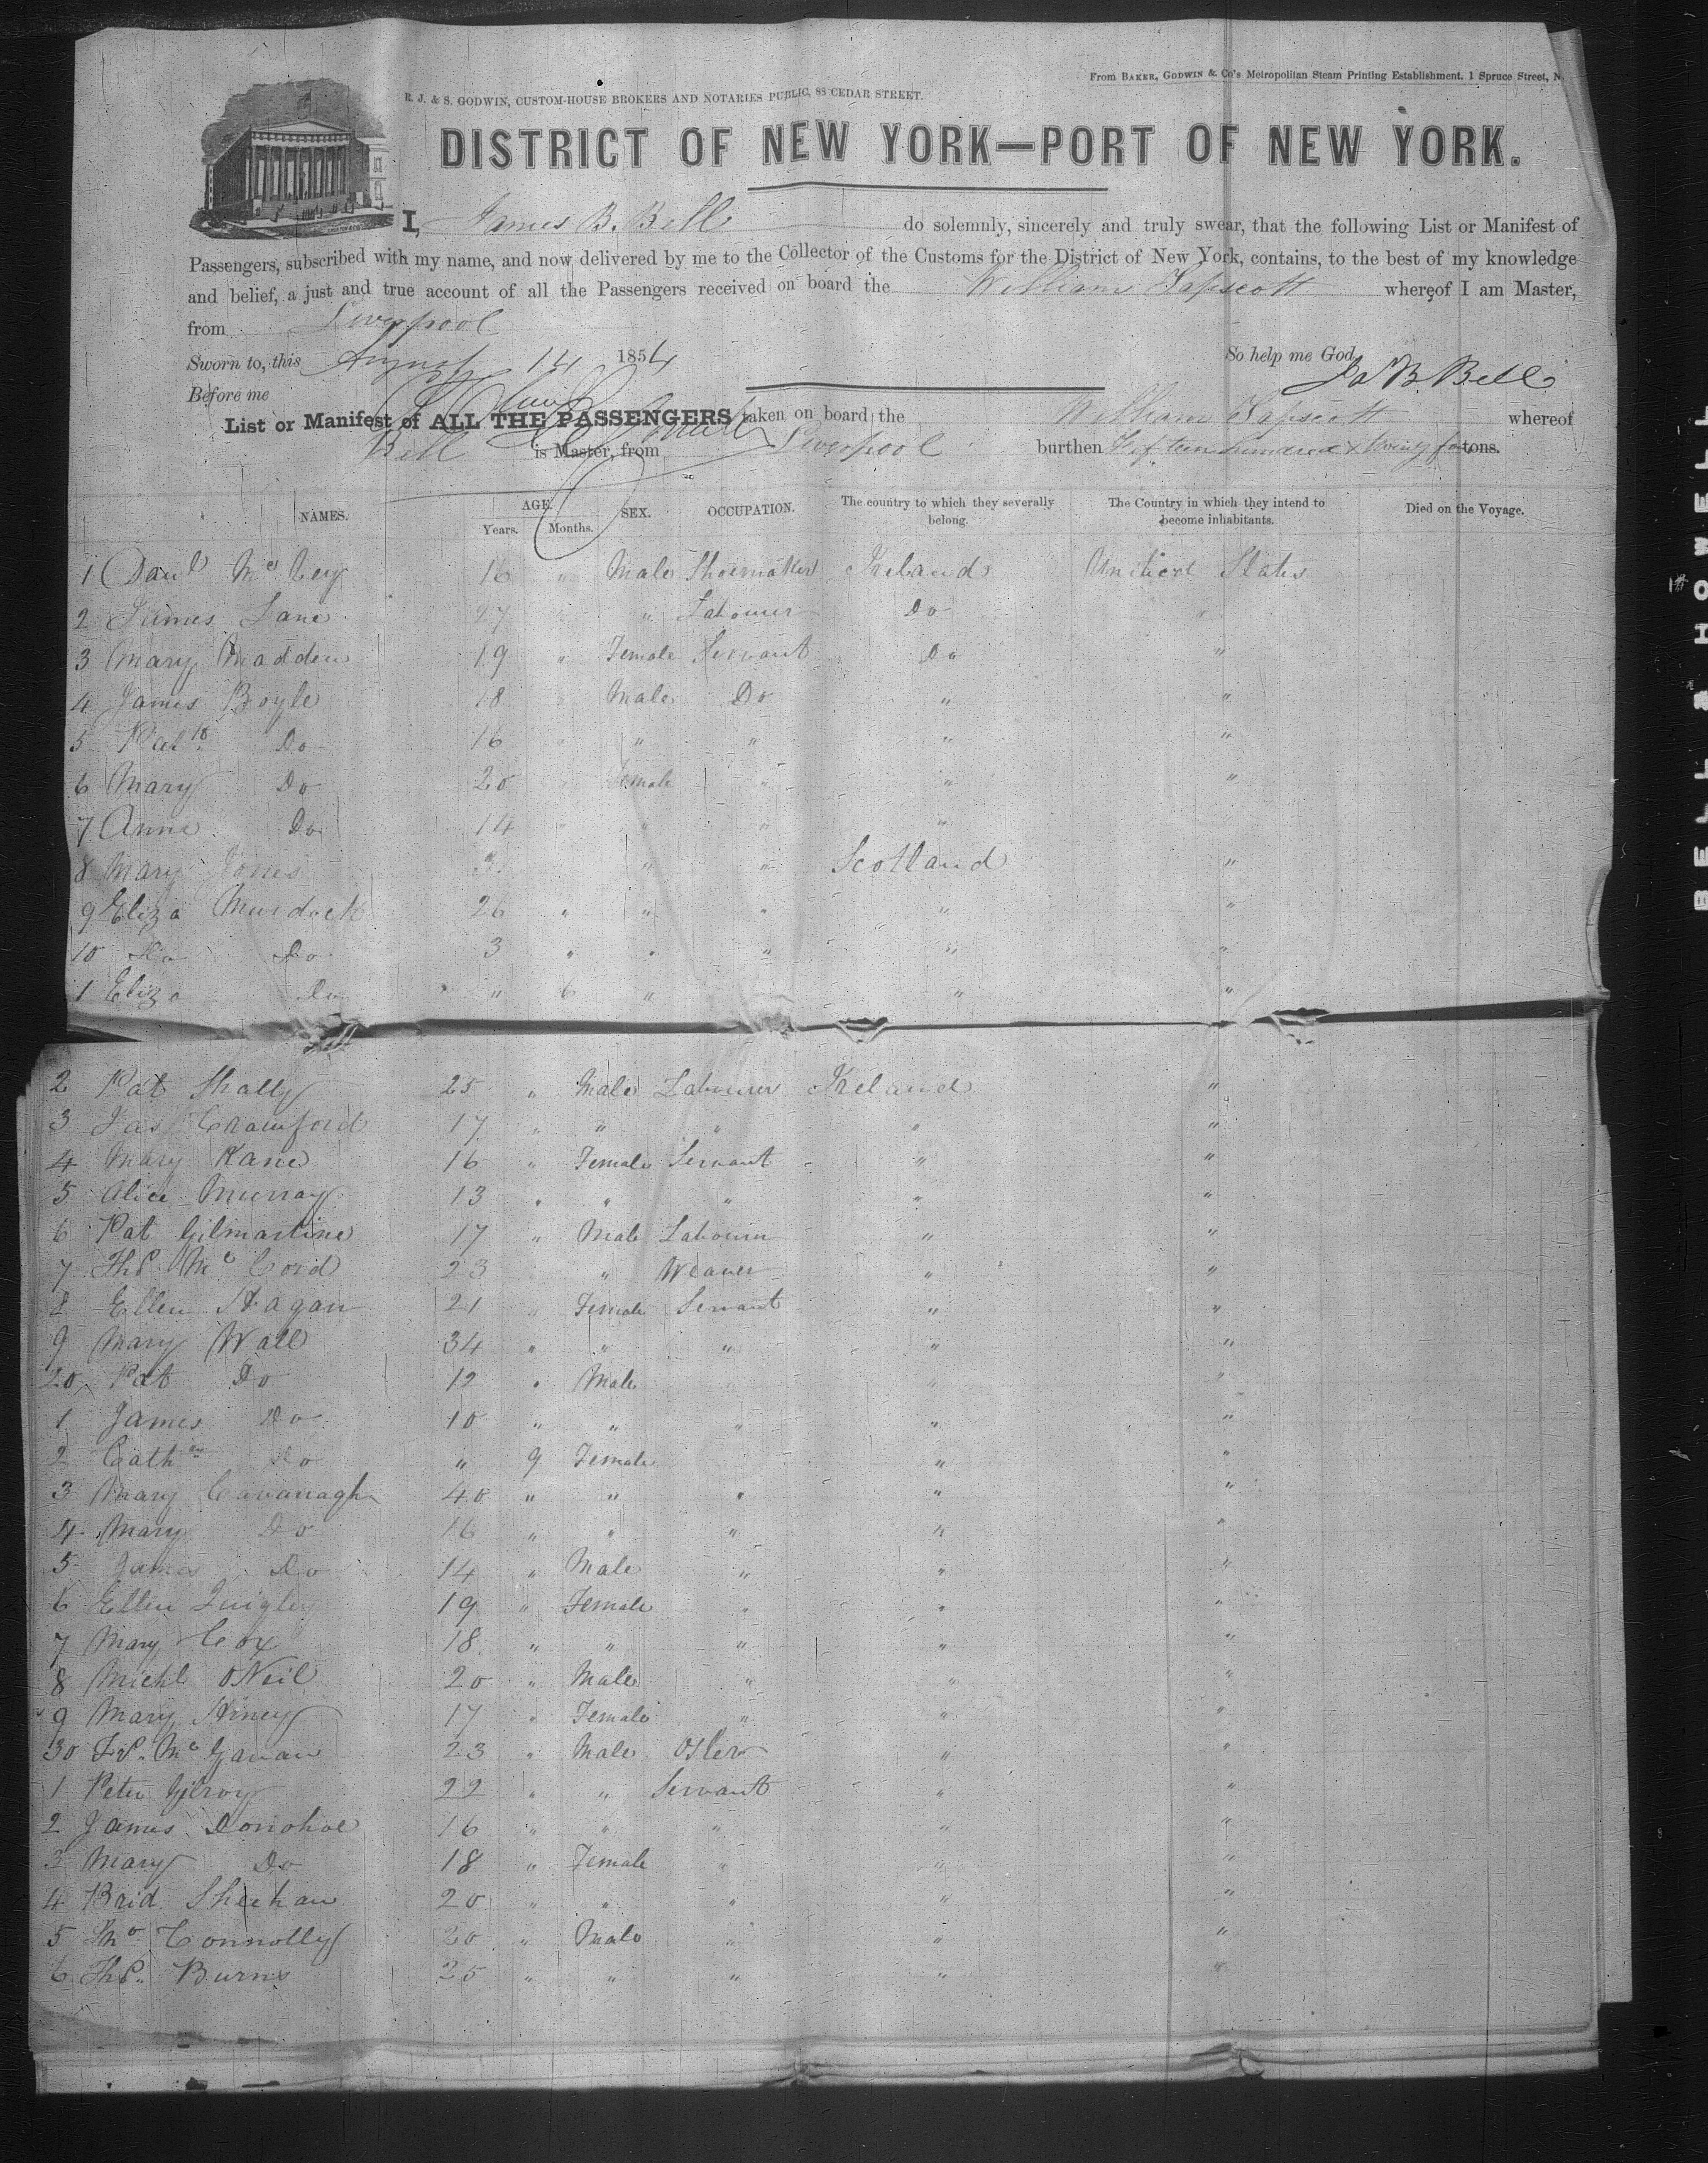 From BAKER, GODWIN & Co's Metropolitan Steam Printing Establishment, 1 Spruce Street, N.
R. J. & S. GODWIN, CUSTOM-HOUSE BROKERS AND NOTARIES PUBLIC, 88 CEDAR STREET.
DISTRICT OF NEW YORK—PORT OF NEW YORK.
I, James B. Bell do solemnly, sincerely and truly swear, that the following List or Manifest of
Passengers, subscribed with my name, and now delivered by me to the Collector of the Customs for the District of New York, contains, to the best of my knowledge
and belief, a just and true account of all the Passengers received on board the William Tapscott whereof I am Master,
from Liverpool
Sworn to, this August 14 1854 So help me God,
Before me Ja B. Bell
List or Manifest of ALL THE PASSENGERS taken on board the William Tapscott whereof
Bell is Master, from Liverpool burthen Fifteen hundred & twenty tons.
NAMES. AGE. Years. Months. SEX. OCCUPATION. The country to which they severally belong. The Country in which they intend to become inhabitants. Died on the Voyage.
1 Danl 16 " Male Shoemaker Ireland United States
2 James Lane 27 " Labourer Do "
3 Mary Madden 19 " Female Servant Do "
4 James Boyle 18 Male Do " "
5 Patk Do 16 " " " "
6 Mary Do 20 Female " " "
7 Anne Do 14 " " " "
8 Mary Jones " " Scotland "
9 Eliza Murdock 26 " " " " "
10 Do Do 3 " " " " "
1 Eliza Do " 6 " " "
2 Pat Shally 25 " Male Labourer Ireland "
3 Jas Crawford 17 " " " " "
4 Mary Kane 16 " Female Servant " "
5 Alice Murray 13 " " " " "
6 Pat Gilmartine 17 " Male Labourer " "
7 Thos McCord 23 " Weaver " "
8 Ellen Hagan 21 " Female Servant " "
9 Mary Wall 34 " " " " "
20 Pat Do 12 " Male " " "
1 James Do 10 " " " " "
2 Cathne Do " 9 Female " "
3 Mary Cavanagh 40 " " " " "
4 Mary Do 16 " " " " "
5 James Do 14 " Male " " "
6 Ellen Quigley 19 " Female " " "
7 Mary Cox 18 " " " " "
8 Michl ONeil 20 " Male " " "
9 Mary Hiney 17 " Female " " "
30 McGavan 23 " Male Osler " "
1 Peter Gilroy 22 " " Servant " "
2 James Donohoe 16 " " " " "
3 Mary Do 18 " Female " " "
4 Brid Sheehan 20 " " " " "
5 Tho Connolly 20 " Male " " "
6 Thos Burns 25 " " " " "
BELL & HOWELL